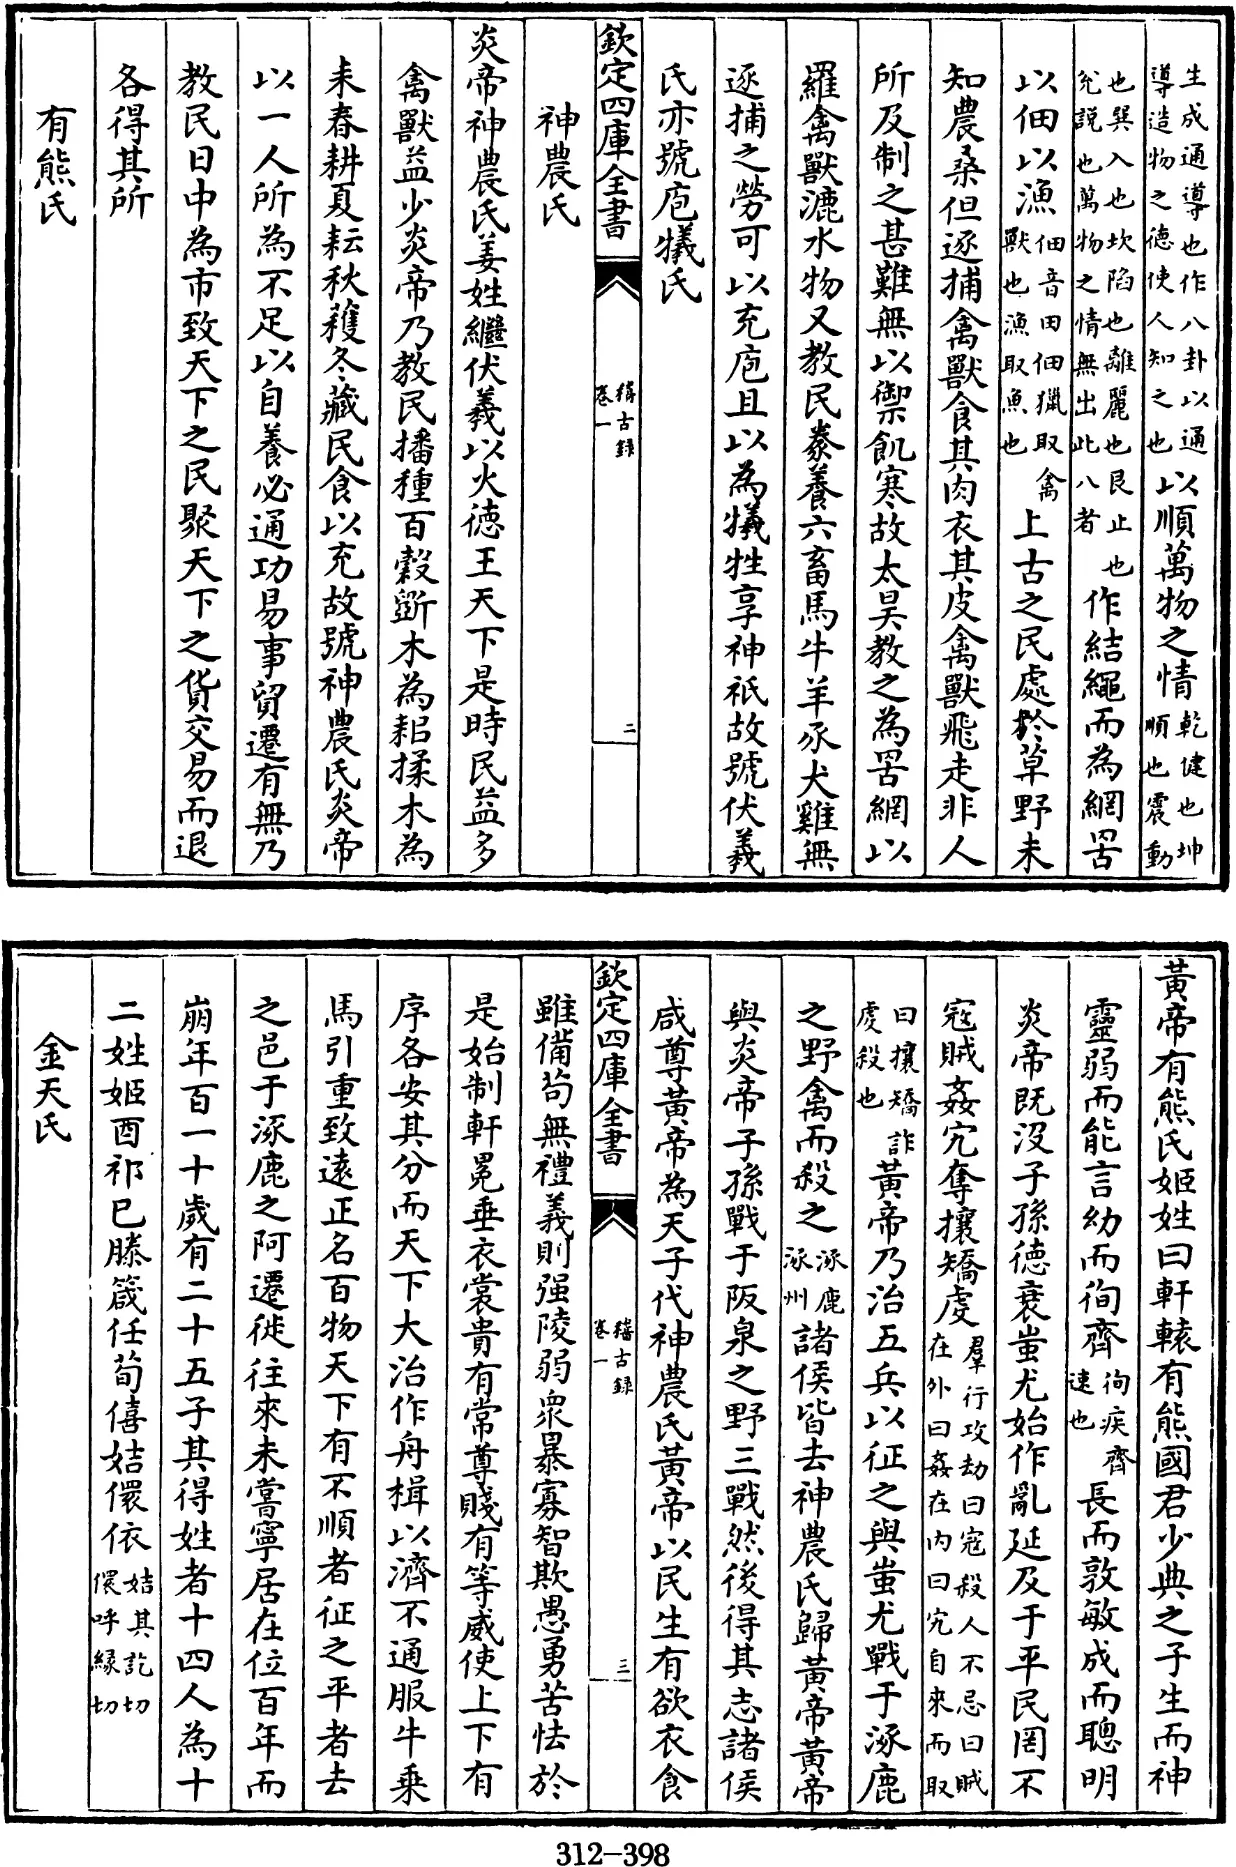 生成通導也作八卦以通
導造物之德使人知之也
以順萬物之情
乾健也坤
順也震動
也巽入也坎陷也離麗也艮止也
兊説也萬物之情無出此八者
作結繩而為網罟
以佃以漁
佃音田佃獵取禽
獸也漁取魚也
上古之民處於草野未
知農桑但逐捕禽獸食其肉衣其皮禽獸飛走非人
所及制之甚難無以禦飢寒故太昊教之為罟網以
羅禽獸漉水物又教民豢養六畜馬牛羊豕犬雞無
逐捕之勞可以充庖且以為犧牲享神祇故號伏羲
氏亦號庖犧氏
欽定四庫全書
稽古録
卷一
二
神農氏
炎帝神農氏姜姓繼伏羲以火德王天下是時民益多
禽獸益少炎帝乃教民播種百穀斵木為耜揉木為
耒春耕夏耘秋穫冬藏民食以充故號神農氏炎帝
以一人所為不足以自養必通功易事貿遷有無乃
教民日中為市致天下之民聚天下之貨交易而退
各得其所
有熊氏
黃帝有熊氏姬姓曰軒轅有熊國君少典之子生而神
靈弱而能言幼而徇齊
徇疾齊
速也
長而敦敏成而聰明
炎帝既沒子孫德衰蚩尤始作亂延及于平民罔不
寇賊姦宄奪攘矯虔
羣行攻劫曰寇殺人不忌曰賊
在外曰姦在内曰宄自來而取
曰攘矯詐
虔殺也
黃帝乃治五兵以征之與蚩尤戰于涿鹿
之野禽而殺之
涿鹿
涿州
諸侯皆去神農氏歸黃帝黃帝
與炎帝子孫戰于阪泉之野三戰然後得其志諸侯
咸尊黃帝為天子代神農氏黃帝以民生有欲衣食
欽定四庫全書
稽古録
卷一
三
雖備苟無禮義則强陵弱衆暴寡智欺愚勇苦怯於
是始制軒冕垂衣裳貴有常尊賤有等威使上下有
序各安其分而天下大治作舟楫以濟不通服牛乘
馬引重致遠正名百物天下有不順者征之平者去
之邑于涿鹿之阿遷徙往來未嘗寧居在位百年而
崩年百一十歲有二十五子其得姓者十四人為十
二姓姬酉祁巳滕箴任荀僖姞儇依
姞其訖切
儇呼縁切
金天氏
312-398